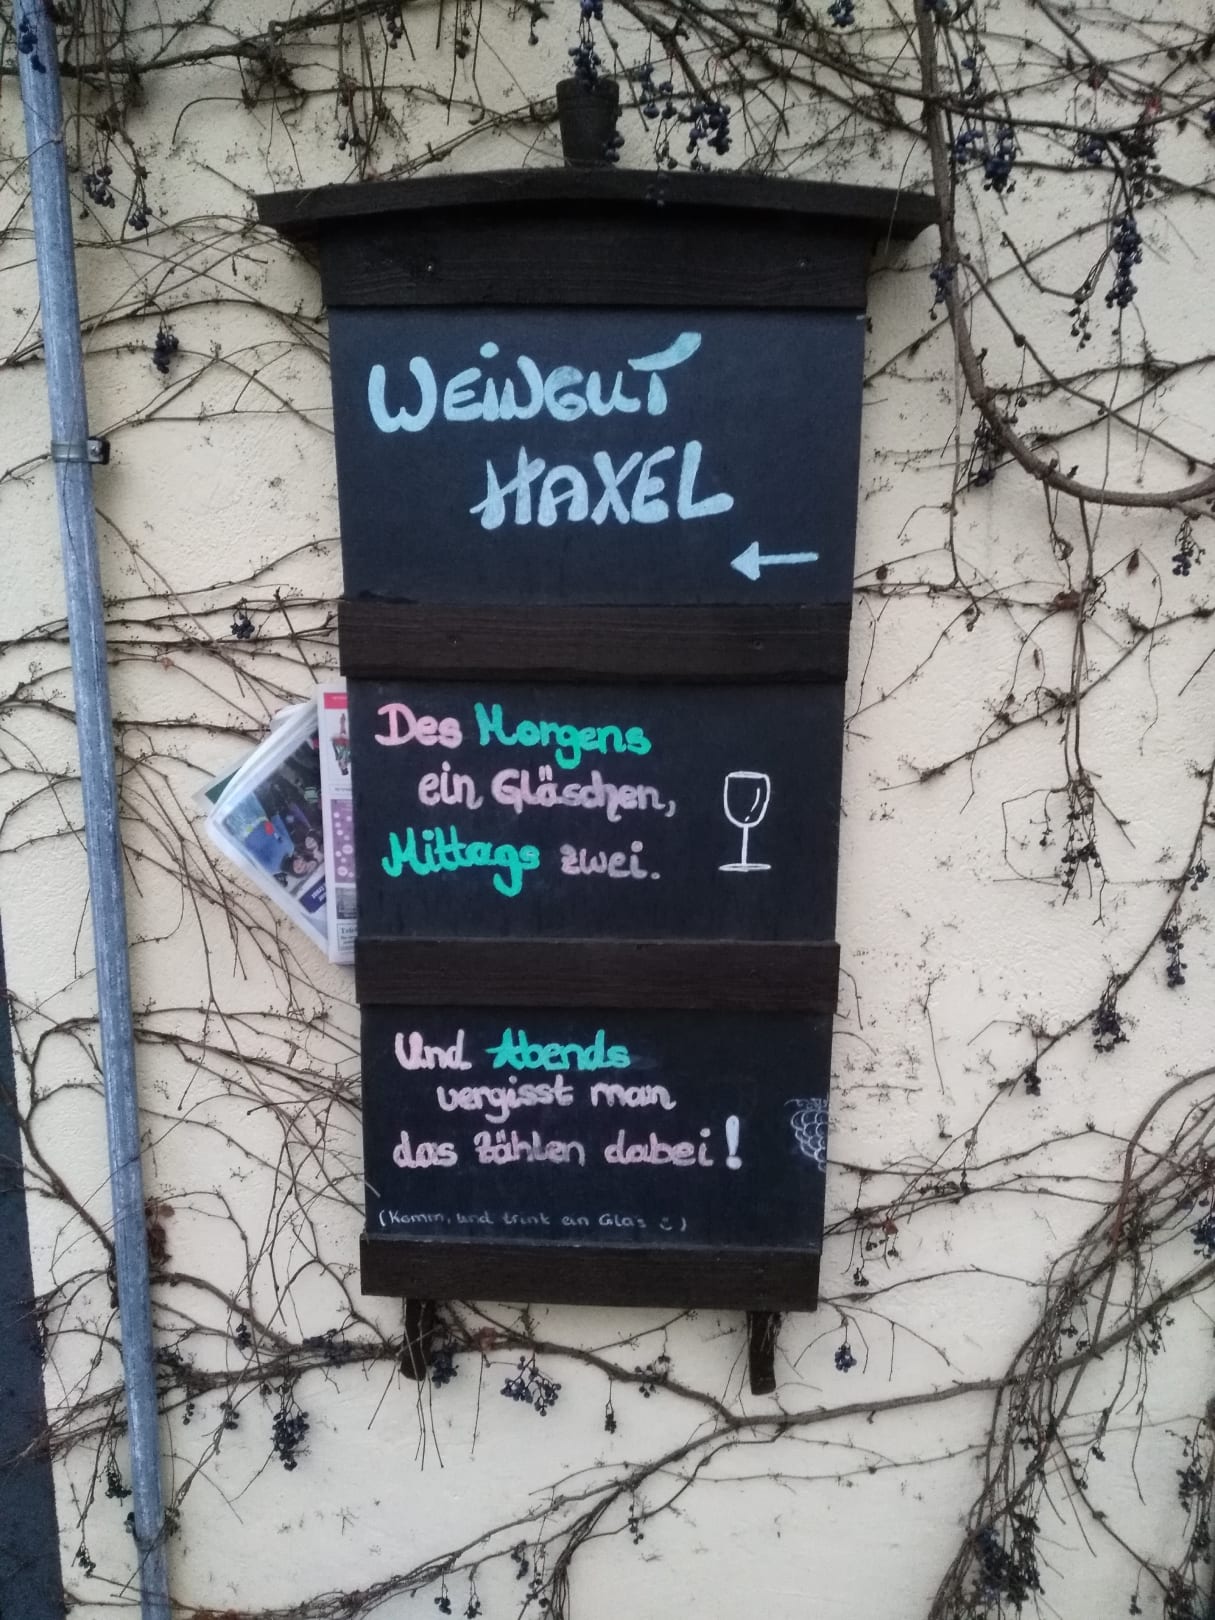 WEINGUT
HAXEL
Des Morgens
ein Gläschen,
Mittags zwei.
Und Abends
vergisst man
das Zählen dabei!
(Komm, und trink ein Glas :)